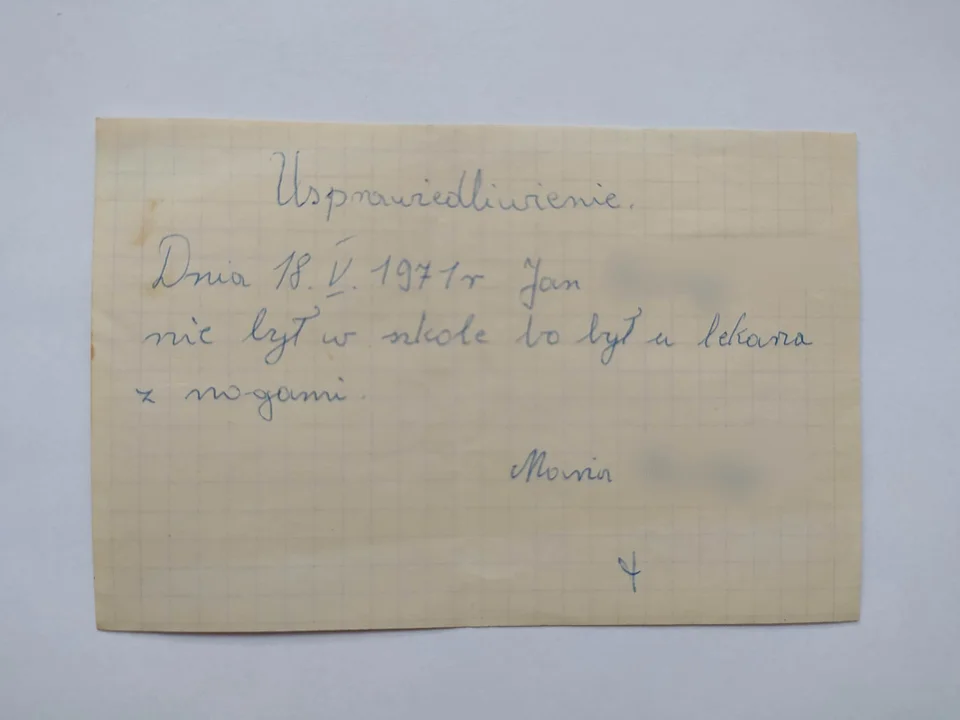 Usprawiedliwienie.
Dnia 18. V. 1971r Jan
nie był w szkole bo był u lekarza
z nogami.
Maria